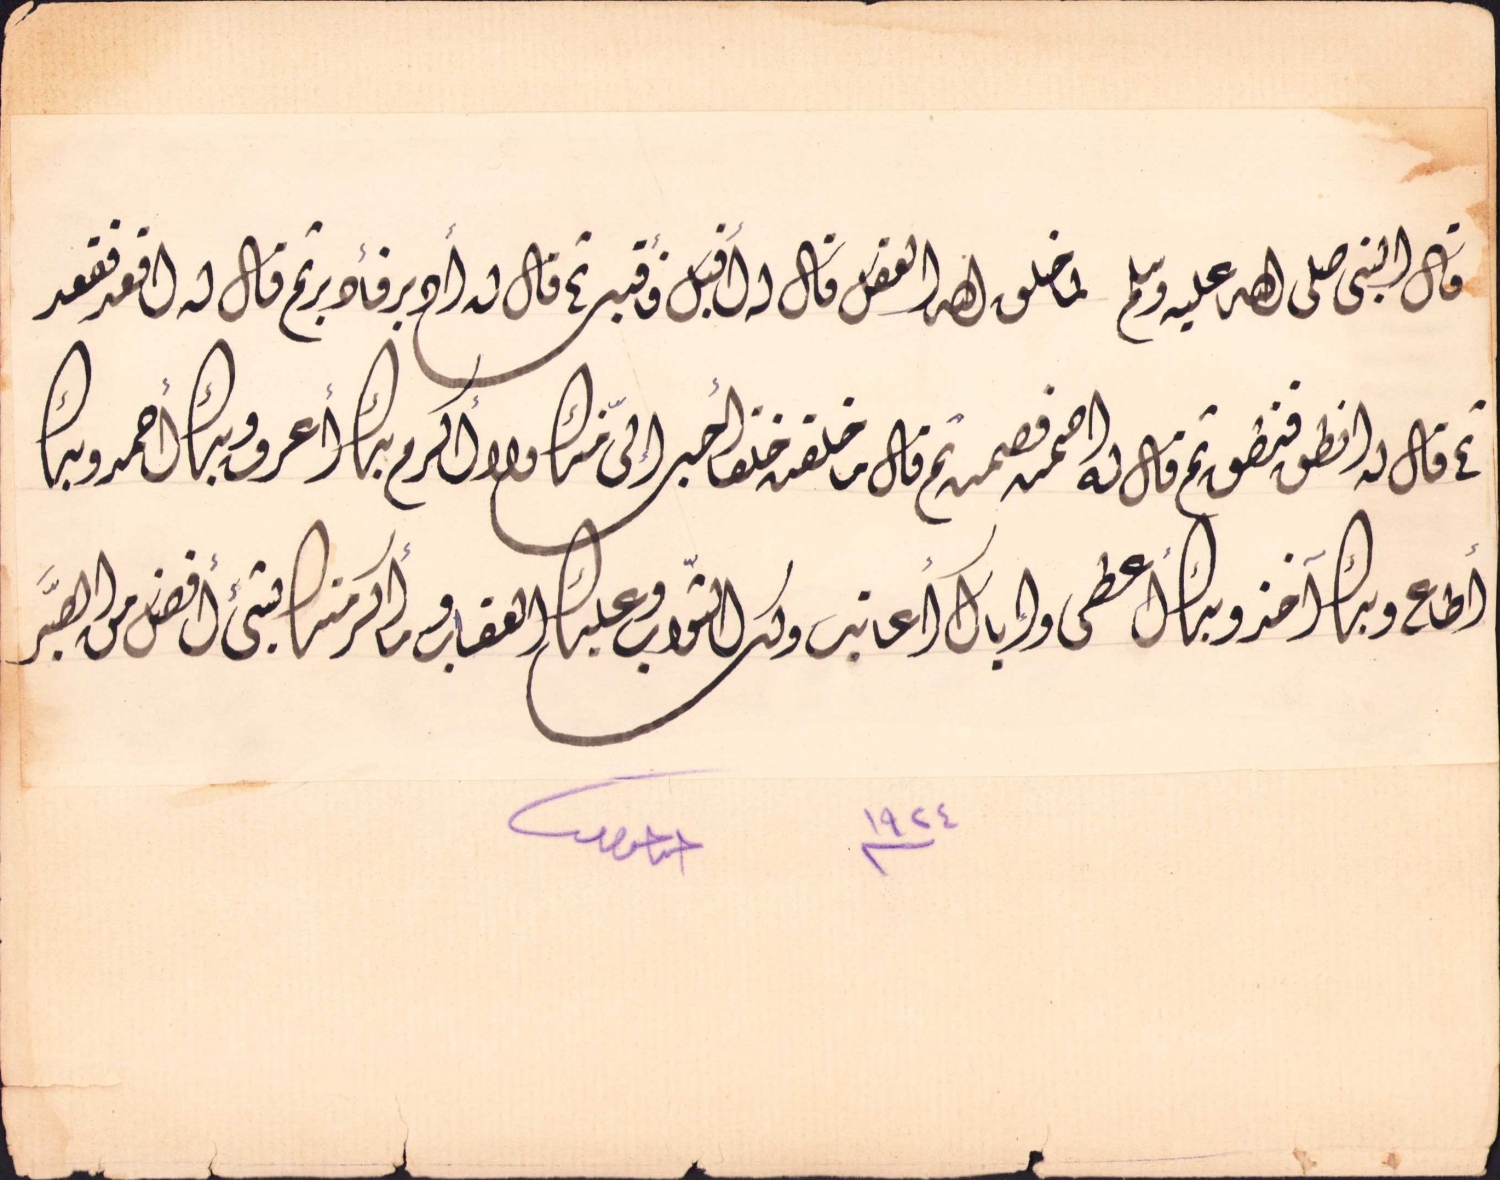 قال النبى صلى الله عليه وسلم لما خلق الله العقل قال له أقبل فأقبل ثم قال له أدبر فأدبر ثم قال له اقعد فقعد
ثم قال له انطق فنطق ثم قال له اصمت فصمت ثم قال ما خلقت خلقا أحب إلىّ منك ولا أكرم بك أعرف وبك أحمد وبك
أطاع وبك آخذ وبك أعطى وإياك أعاتب ولك الثواب وعليك العقاب وما أكرمتك بشئ أفضل من الصَّبر
١٩٢٤